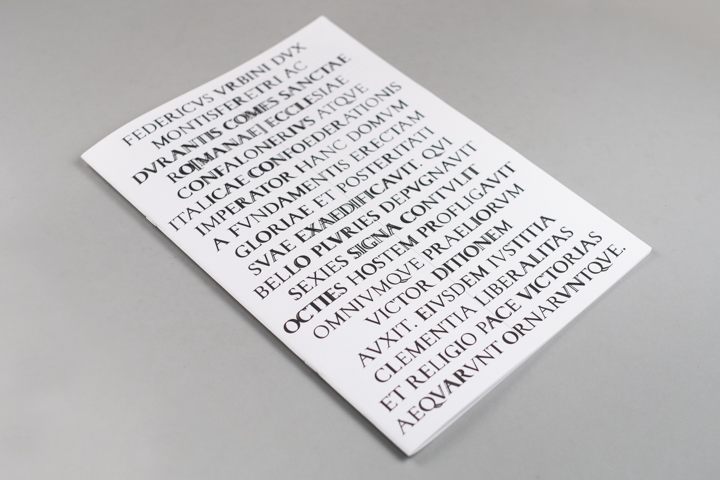 FEDERICVS VRBINI DVX
MONTISFERETRI AC
DVRANTIS COMES SANCTAE
RO[MANAE] ECCLESIAE
CONFALONERIVS ATQVE
ITALICAE CONFOEDERATIONIS
IMPERATOR HANC DOMVM
A FVNDAMENTIS ERECTAM
GLORIAE ET POSTERITATI
SVAE EXAEDIFICAVIT QVI
BELLO PLVRIES DEPVGNAVIT
SEXIES SIGNA CONTVLIT
OCTIES HOSTEM PROFLIGAVIT
OMNIVMQVE PRAELIORVM
VICTOR DITIONEM
AVXIT. EIVSDEM IVSTITIA
CLEMENTIA LIBERALITAS
ET RELIGIO PACE VICTORIAS
AEQVARVNT ORNARVNTQVE.